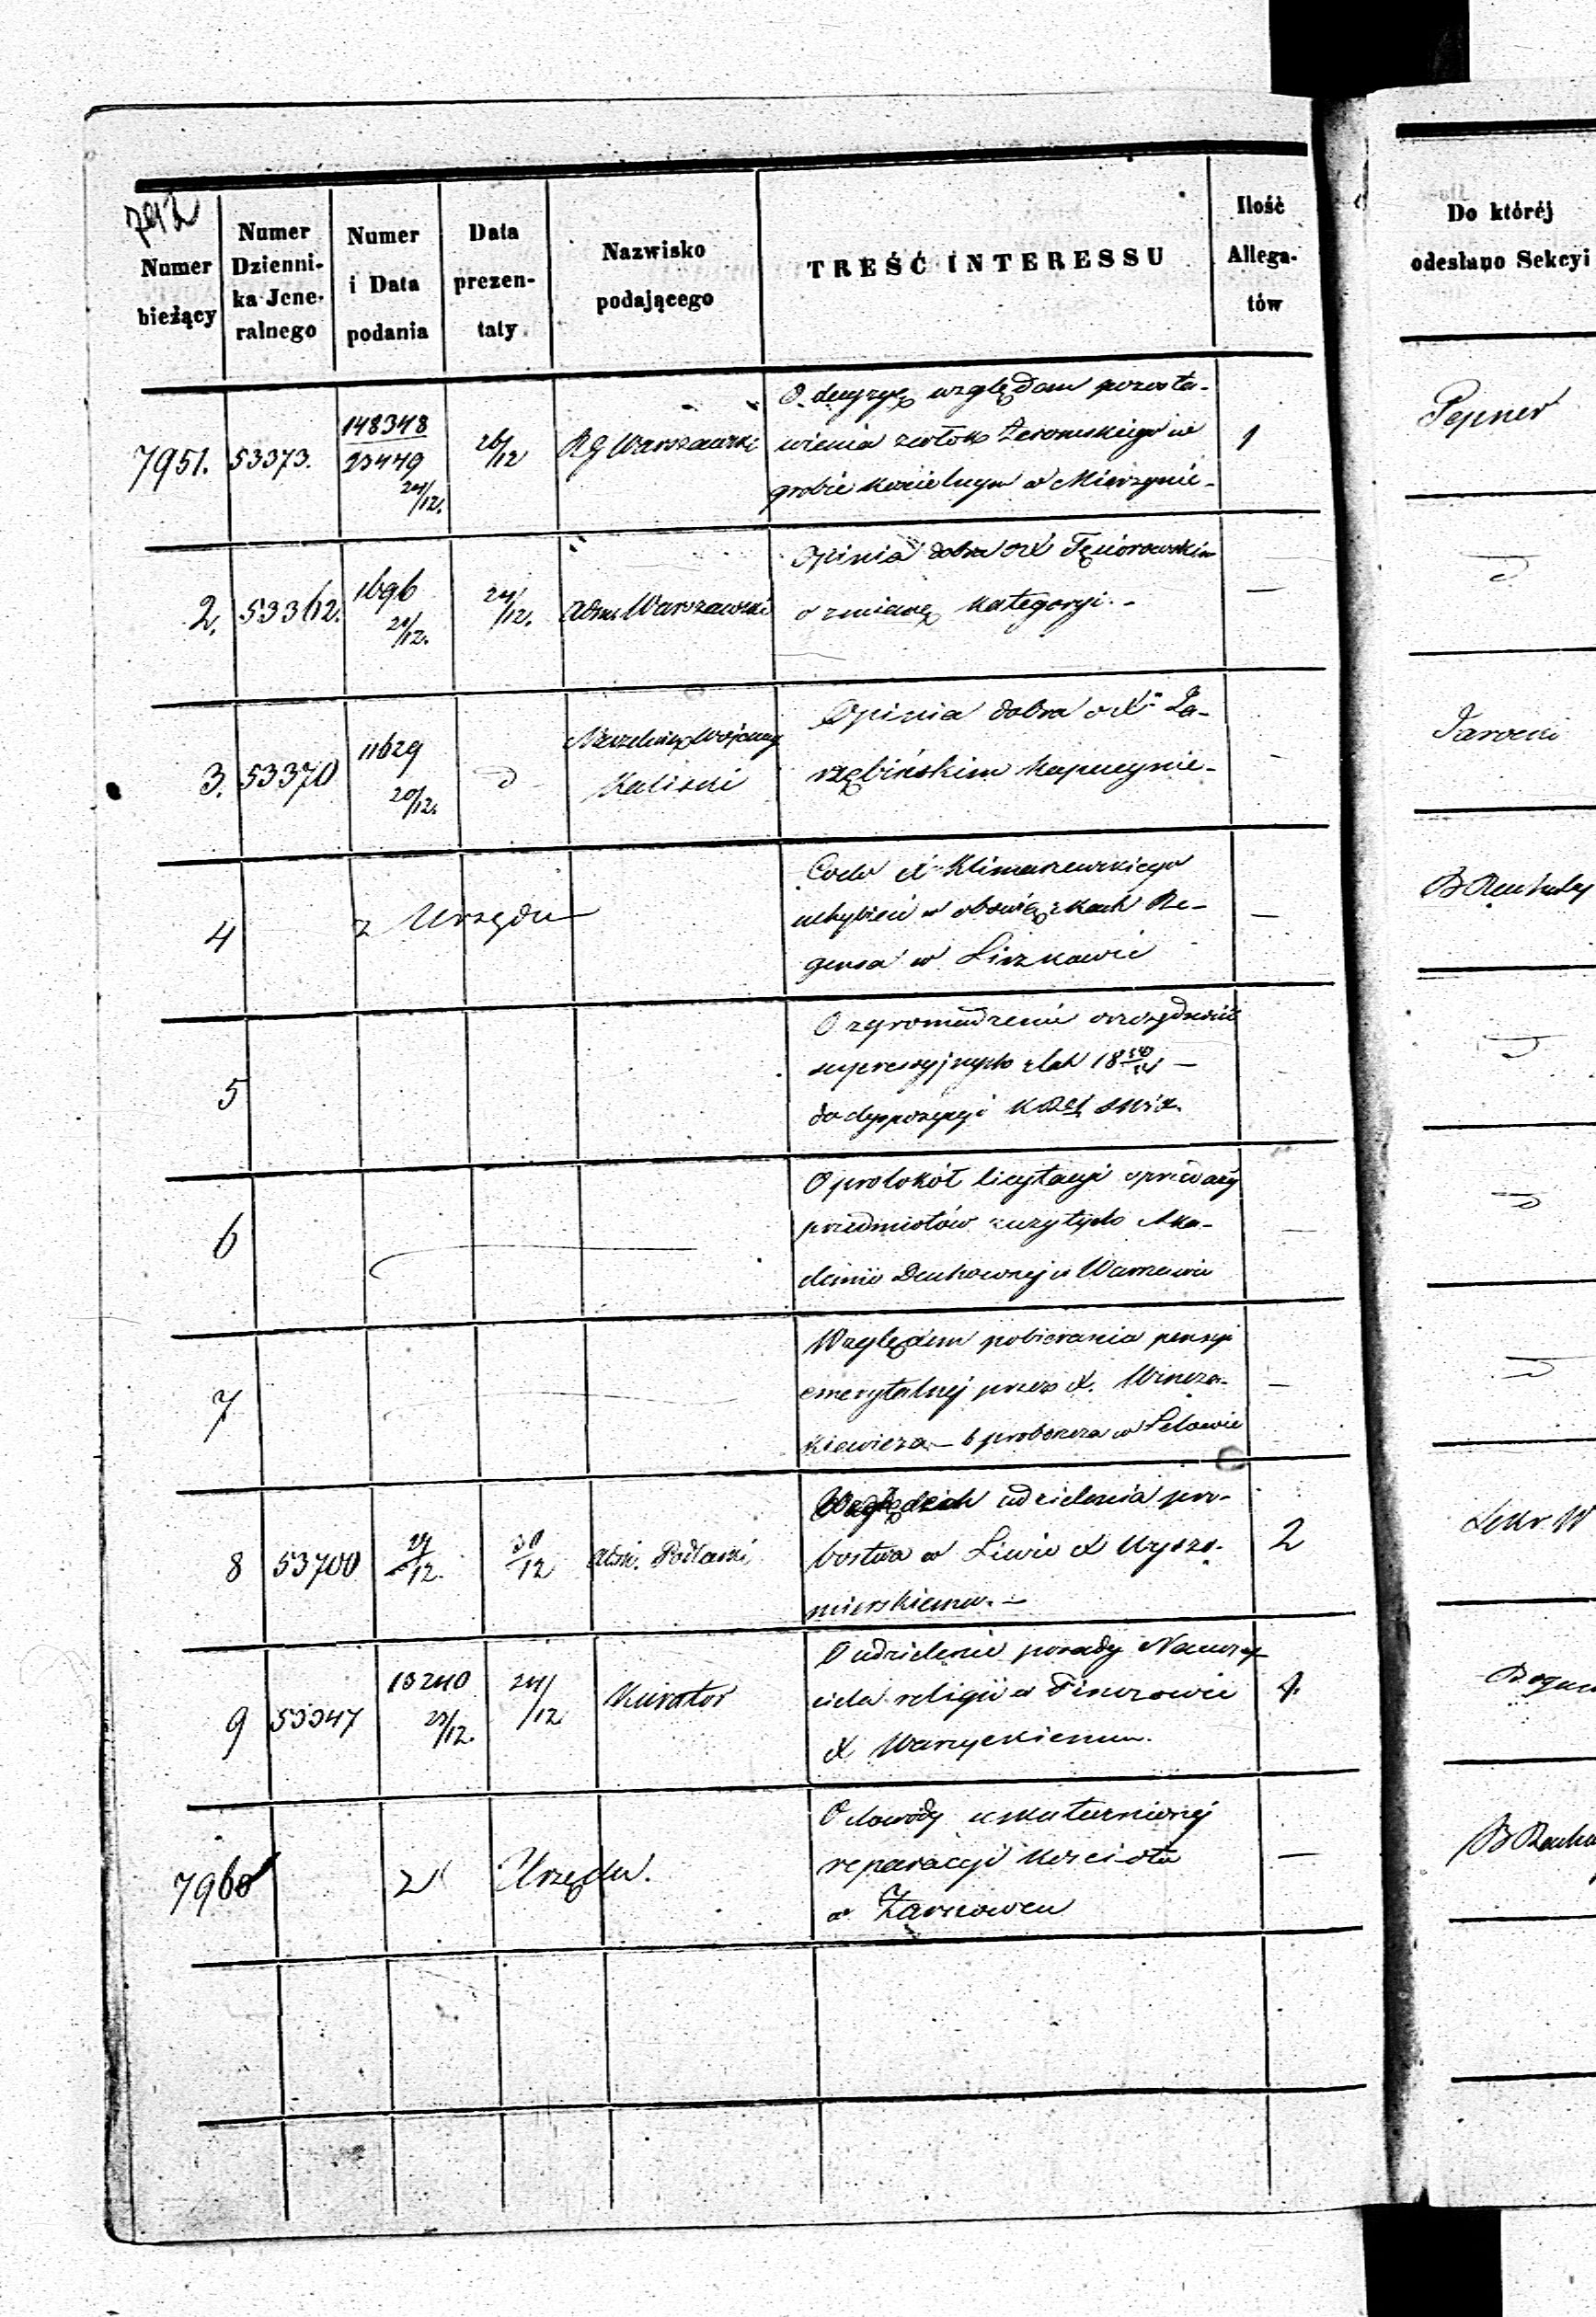 792
Numer bieżący
Numer Dzienni-ka Jene-ralnego
Numer i Data podania
Data prezen-taty
Nazwisko podającego
TREŚĆ INTERESSU
Ilość Allega-tów
Do któréj odesłano Sekcyi
7951. 53373. 148348 23449 24/12. 26/12 RG Warszawski
O decyzyę względem pozosta-
wienia zwłok Żeromskiego w
grobie kościelnym w Mierzynie -
1
Pepner
2. 53362. 1696 20/12. 24/12. Adm. Warszawski
Opinia dobra o X
o zmianę kategoryi. -
—
3. 53370 11629 20/12. Naczelnik Wojenny
Kaliski
Opinia dobra o X Za-
rzębińskim Kapucynie -
-
Jarocki
4 z Urzędu
Co do X Klimaszewskiego
uchybień w obowiązkach Re-
gensa w Liszkowie
—
5
O zgromadzenie
supressyjnych z lat 18
do dyspozycyi
6
O protokół licytacyi sprzedaży
przedmiotów zużytych Aka-
demii Duchownej w Warszawie
—
7
Względem pobierania pensyi
emerytalnej przez X. Wincza-
kiewicza - b proboszcza w
—
8 53700 29/12. 30/12 Adm. Podlaski
udzielenia pro-
bostwa w Liwie X Wyszo-
mierskiemu. -
2
Sekr. W
9 53347 13240 23/12. 24/12 Kurator
O udzielenie posady Nauczy-
ciela religii w Pinczowie
X Warzyckiemu.
1.
7960 z Urzędu.
O dowody uskutecznionej
reparacyi Kościoła
w Żarnowcu
—